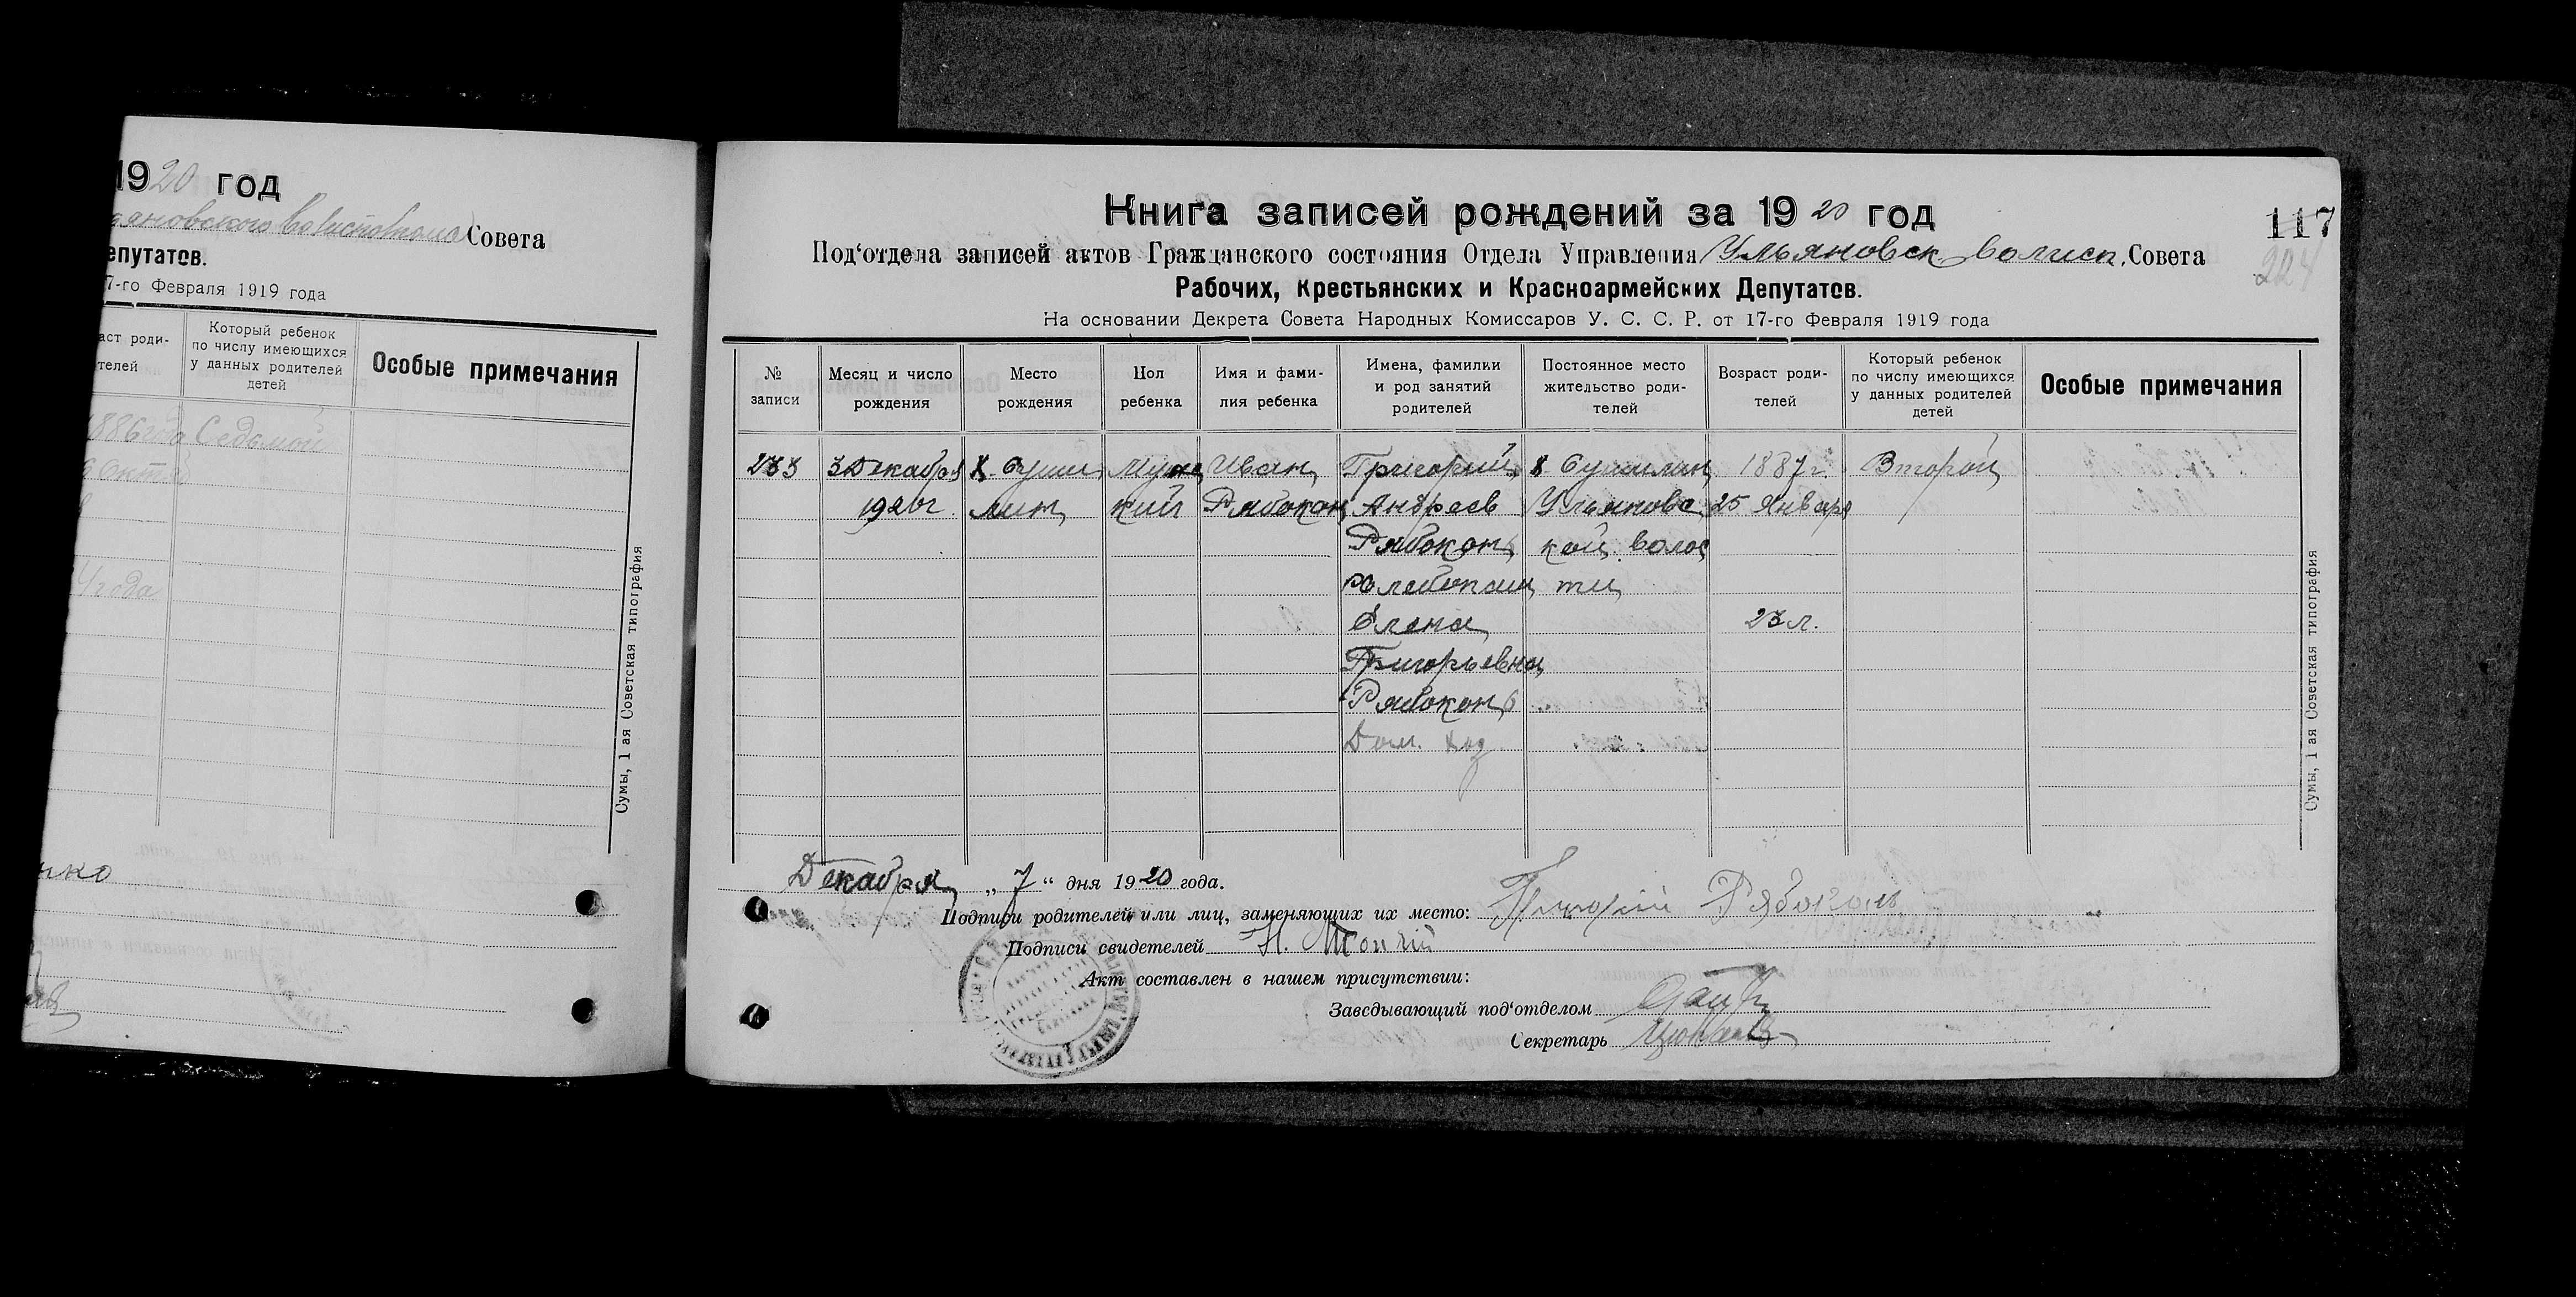 1920 год
Совета
епутатов.
7-го Февраля 1919 года
аст роди-
телей
Который ребенок
по числу имеющихся
у данных родителей
детей
Особые примечания
1886 года Седьмой
Сумы, 1 ая Советская типография
нко
Книга записей рождений за 1920 год
117
224
Под'отдела записей актов Гражданского состояния Отдела Управления Ульяновск волисп. Совета
Рабочих, Крестьянских и Красноармейских Депутатов.
На основании Декрета Совета Народных Комиссаров У. С. С. Р. от 17-го Февраля 1919 года
№
записи
Месяц и число
рождения
Место
рождения
Пол
ребенка
Имя и фами-
лия ребенка
Имена, фамилии
и род занятий
родителей
Постоянное место
жительство роди-
телей
Возраст роди-
телей
Который ребенок
по числу имеющихся
у данных родителей
детей
Особые примечания
233 3 Декабря Х. Суши Мужс Иван Григорий Х Сушилин 1887 г. Второй
1920 г. лин кий Рябоконь Андреев Ульяновс 25 Января
Рябоконь кой волос
хлебопаш ти
Елена 23 л.
Григорьевна
Рябоконь
Дом. хоз
Сумы, 1 ая Советская типография
Декабря „7“ дня 1920 года.
Подписи родителей или лиц, заменяющих их место: Григорий Рябоконь
Подписи свидетелей Н.
Акт составлен в нашем присутствии:
Заведывающий под'отделом
Секретарь